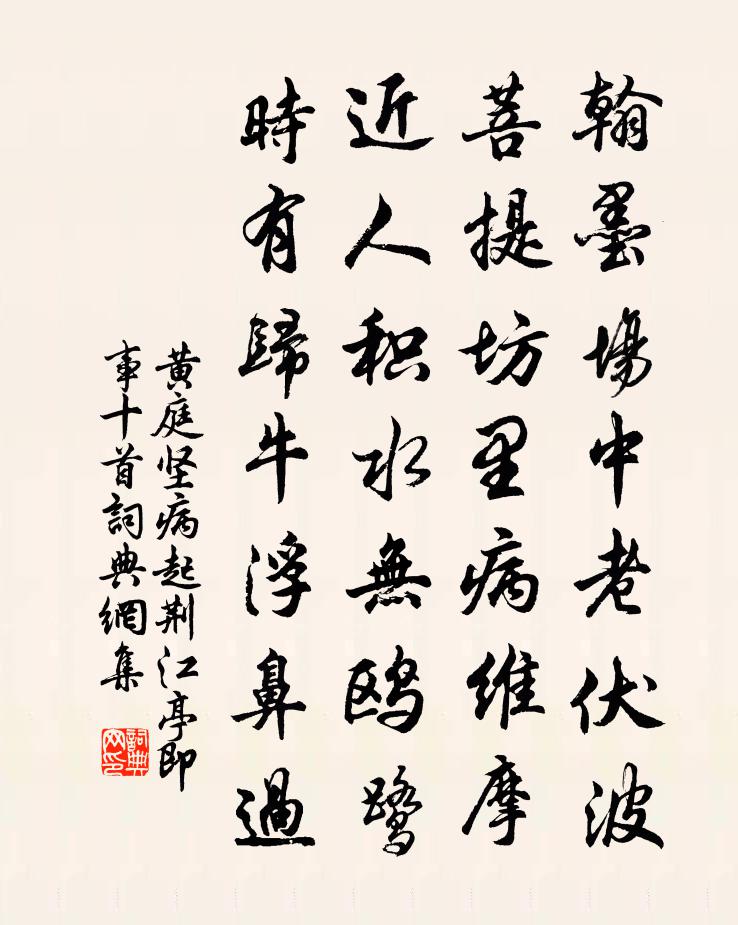 翰墨場中老伏波
菩提坊里病維摩
近人积水無鸥鹭
時有歸牛浮鼻過
黄庭坚病起荆江亭即
事十首詞典網集
詞典
网印